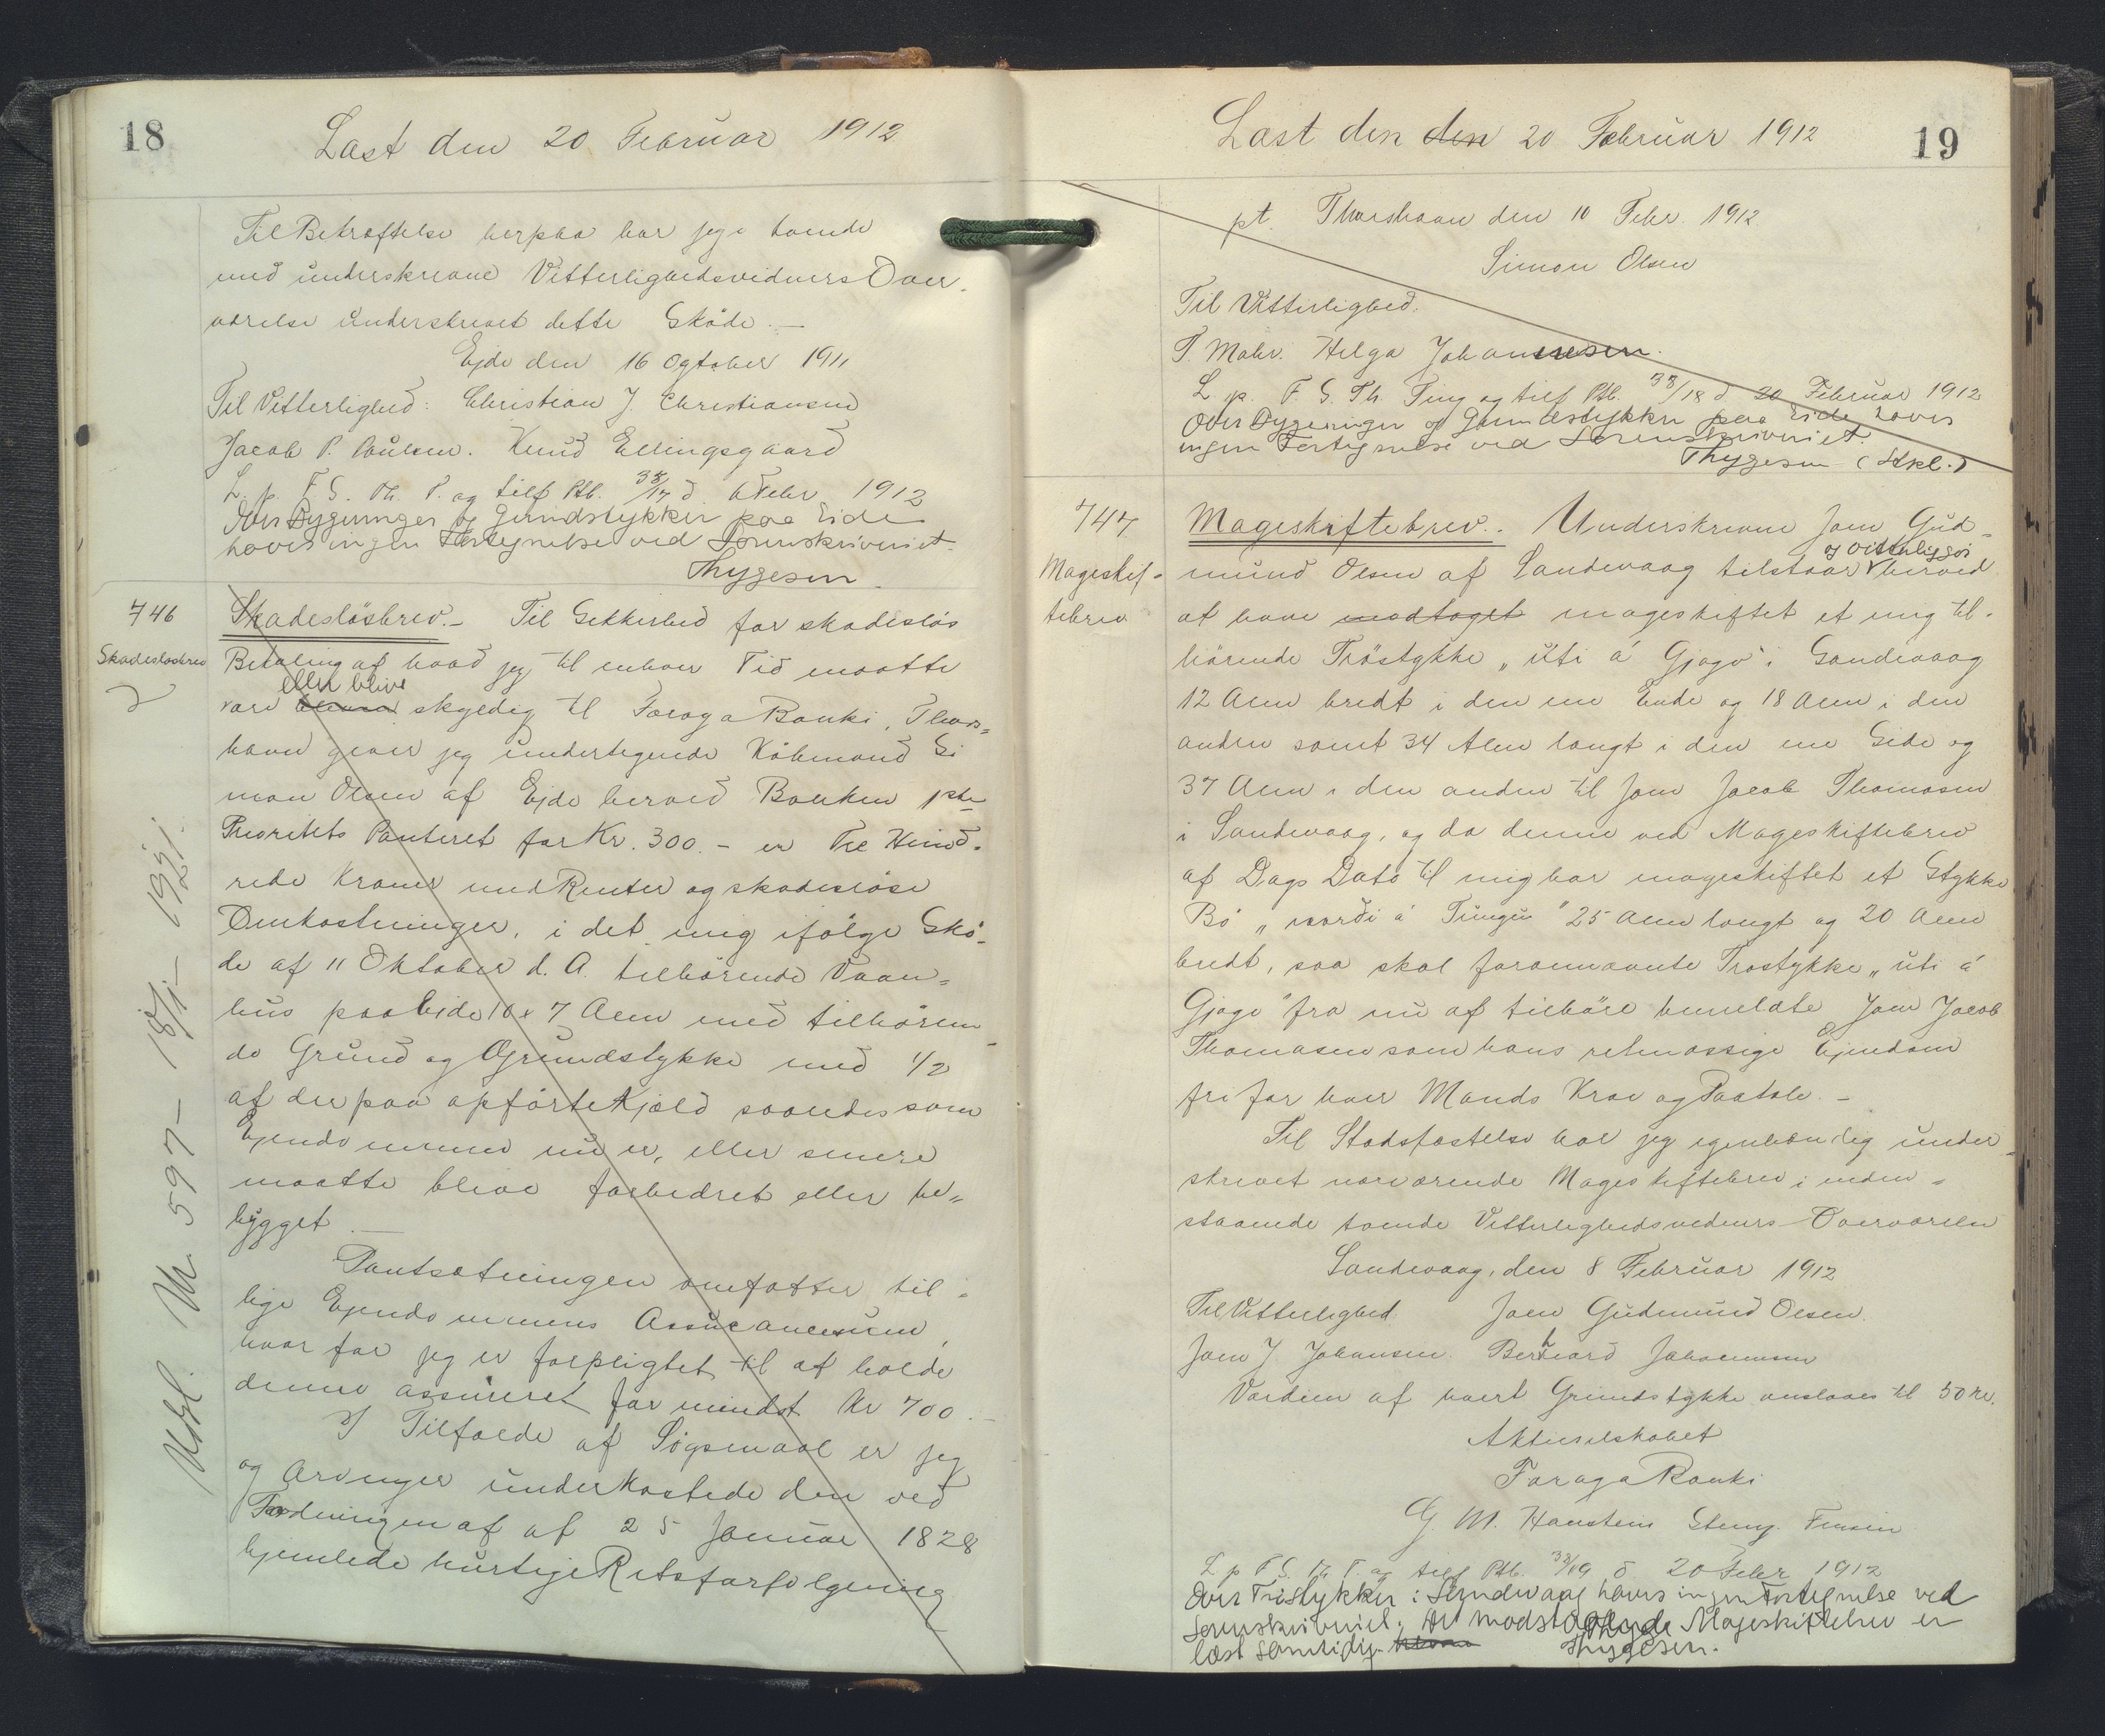 18
Læst den 20 Februar 1912
Til Bekræftelse herpaa har jeg i tvende
med underskrevne Vitterlighedsvidners Over-
værelse underskrevet dette Skøde. —
Ejde den 16 Ogtober 1911
Til Vitterlighed: Christian J. Christiansen
Jacob P. Poulsen. Knud Ellingsgaard
L. p. F. S. Th. T. og tilf Ptb. 38/17 d. Febr 1912
Over Bygninger og Grundstykker paa Eide
haves ingen Fortegnelse ved Sorenskriveriet.
Thygesen
746
Skadesløsbrev
Skadesløsbrev. — Til Sikkerhed for skadesløs
Betaling af hvad jeg til enhver Tid maatte
eller blive
være skyldig til Føroya Banki, Thors=
havn giver jeg undertegnede Købmand Si
mon Olsen af Ejde herved Banken 1ste
Prioritets Panteret for Kr. 300. - er Tre Hund-
rede Kroner med Renter og skadesløse
Omkostninger, i det mig ifølge Skø-
de af 11 Oktober d. A. tilhørende Vaan=
hus paa Eide 10 x 7 Alen med tilhøren-
de Grund og Grundstykke med 1/2
af der paa opførte Kjæld saaledes som
Ejendommen nu er, eller senere
maatte blive forbedret eller be=
bygget —
Pantsætningen omfatter til=
lige Ejendommens Assurancesum,
hvor for jeg er forpligtet til at holde
denne assureret for mindst Kr 700. —
I Tilfælde af Søgsmaal er jeg
og Arvinger underkastede den ved
Forordningen af af 25 Januar 1828
hjemlede hurtige Retsforfølgning
Udsl. Nr 597 — 18/1 — 1921.
Læst den den 20 Februar 1912
19
pt. Thorshavn den 10 Febr. 1912
Simon Olsen
Til Vitterlighed.
T. Mohr. Helga Johannesen.
L. p. F. S. Th. Ting og tilf Ptb. 38/18 d 20 Februar 1912
Over Bygninger og Grundstykker paa Eide haves
ingen Fortegnelse ved Sorenskriveriet.
Thygesen (Stpl.)
747
Mageskif=
tebrev
Mageskiftebrev. Underskrevne Joen Gud=
og vitterliggør
mund Olsen af Sandevaag tilstaar herved
at have modtaget mageskiftet et mig til-
hørende Trøstykke „uti á Gjógv“ i Sandevaag
12 Alen bredt i den ene Ende og 18 Alen i den
anden samt 34 Alen langt i den ene Side og
37 Alen i den anden til Joen Jacob Thomasen
i Sandevaag, og da denne ved Mageskiftebrev
af Dags Dato til mig har mageskiftet et Stykke
Bø „norði á Tungu“ 25 Alen langt og 20 Alen
bredt, saa skal forannævnte Trøstykke „uti á
Gjógv“ fra nu af tilhøre bemeldte Joen Jacob
Thomasen som hans retmæssige Ejendom
fri for hver Mands Krav og Paatale. —
Til Stadfæstelse har jeg egenhændig under-
skrevet nærværende Mageskiftebrev i neden=
staaende tvende Vitterlighedsvidners Overværelse
Sandevaag, den 8 Februar 1912
Til Vitterlighed. Joen Gudmund Olsen.
Joen J. Johansen. Bernhard Johannesen
Værdien af hvert Grundstykke anslaaes til 50 Kr.
Aktieselskabet
Føroya Banki
C M. Hansten Steng. Finsen
L p F. S. Th T. og tilf Ptb. 38/19 d 20 Febr 1912
Over Trøstykker i Sandevaag haves ingen Fortegnelse ved
Sorenskriveriet. Det modstaaende Mageskiftebrev er
læst samtidig. Thygesen.